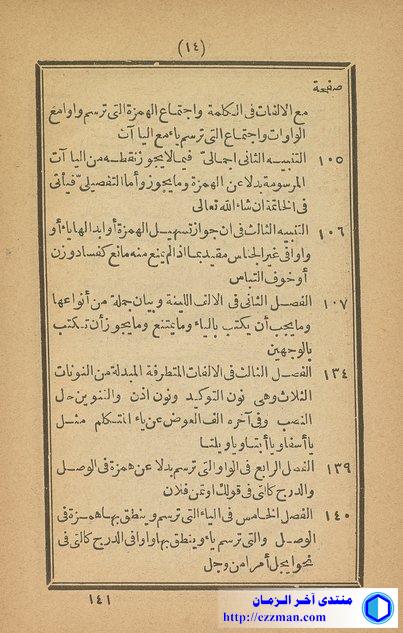 (١٤)
صفحة
مع الالفات فى الكلمة واجتماع الهمزة التى ترسم واوا مع
الواوات واجتماع التى ترسم ياء مع اليا آت
١٠٥ التنبيه الثانى اجمالىّ فيما لا يجوز نقطه من اليا آت
المرسومة بدلا عن الهمزة وما يجوز وأما التفصيلىّ فيأتى
فى الخاتمة ان شاء الله تعالى
١٠٦ التنبيه الثالث فى ان جواز تسهيل الهمزة أوابدالها ياء أو
واوا فى غير الجناس مقيد بما اذا لم يمنع منه مانع كفساد وزن
أو خوف التباس
١٠٧ الفصل الثانى فى الالف اللينة وبيان جملة من أنواعها
وما يجب أن يكتب بالياء وما يمتنع وما يجوز أن تكتب
بالوجهين
١٣٤ الفصل الثالث فى الالفات المتطرفة المبدلة من النونات
الثلاث وهى نون التوكيد ونون اذن والتنوين حال
النصب وفى آخره الف العوض عن ياء المتكلم مثل
يا أسفا ويا أبتا ويا ويلتا
١٣٩ الفصل الرابع فى الواو التى ترسم بدلا عن همزة فى الوصل
والدرج كالتى فى قولك اوتمن فلان
١٤٠ الفصل الخامس فى الياء التى ترسم وينطق بها همزة فى
الوصل والتى ترسم ياء وينطق بها واوا فى الدرج كالتى فى
نحو ايجل أمر من وجل
١٤١
منتدى آخر الـزمـان
http://ezzman.com